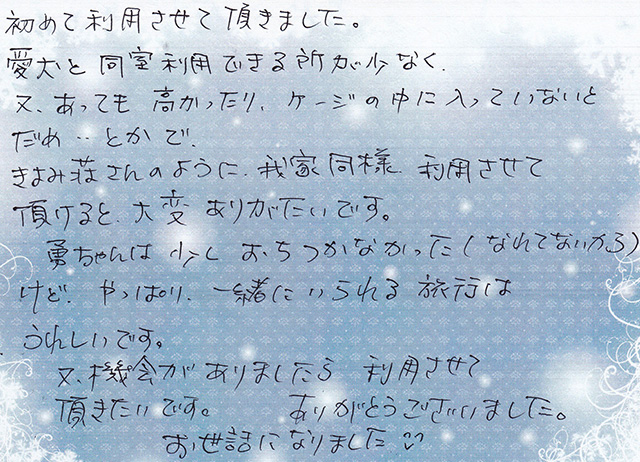 初めて利用させて頂きました。
愛犬と同室利用できる所が少なく、
又、あっても高かったり、ケージの中に入っていないと
だめ…とかで、
きよみ荘さんのように、我家同様、利用させて
頂けると、大変ありがたいです。
勇ちゃんは少しおちつかなかった(なれてないから)
けど、やっぱり、一緒にいられる旅行は
うれしいです。
又、機会がありましたら利用させて
頂きたいです。 ありがとうございました。
お世話になりました♡